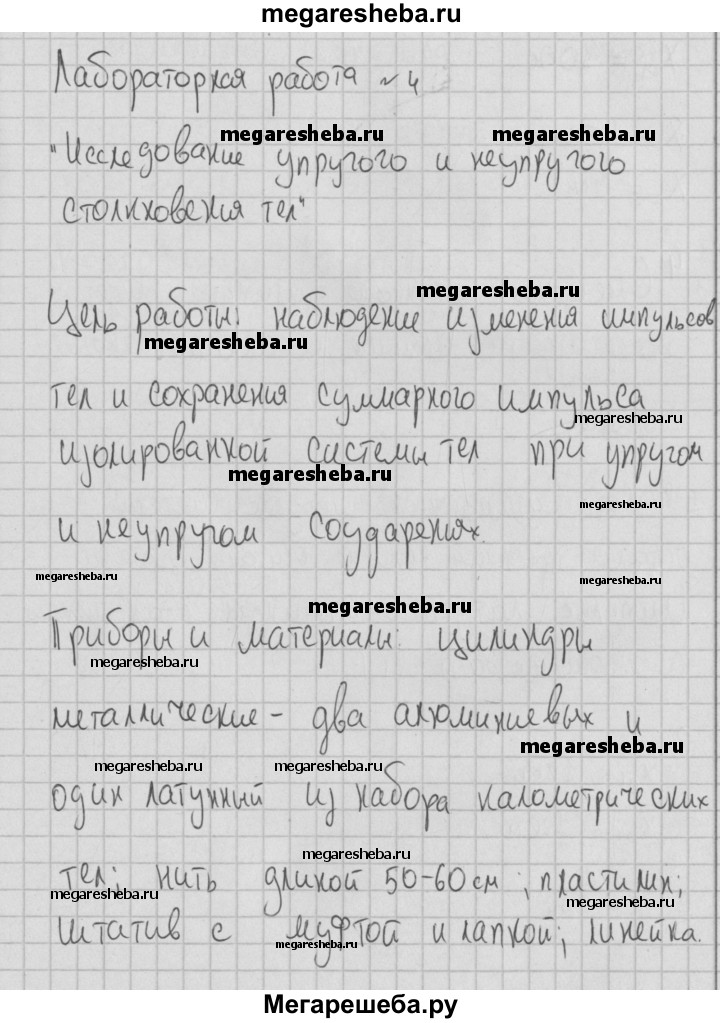 megaresheba.ru
Лабораторная работа №4
megaresheba.ru megaresheba.ru
"Исследование упругого и неупругого
столкновения тел"
megaresheba.ru
Цель работы: наблюдение изменения импульсов
megaresheba.ru
тел и сохранения суммарного импульса
megaresheba.ru
изолированной системы тел при упругом
megaresheba.ru
megaresheba.ru
и неупругом соударениях.
megaresheba.ru megaresheba.ru
megaresheba.ru
Приборы и материалы: цилиндры
megaresheba.ru
металлические - два алюминиевых и
megaresheba.ru
megaresheba.ru megaresheba.ru
один латунный из набора калометрических
megaresheba.ru
тел; нить длиной 50-60см; пластилин;
megaresheba.ru megaresheba.ru
штатив с муфтой и лапкой; линейка.
megaresheba.ru
Мегарешеба.ру